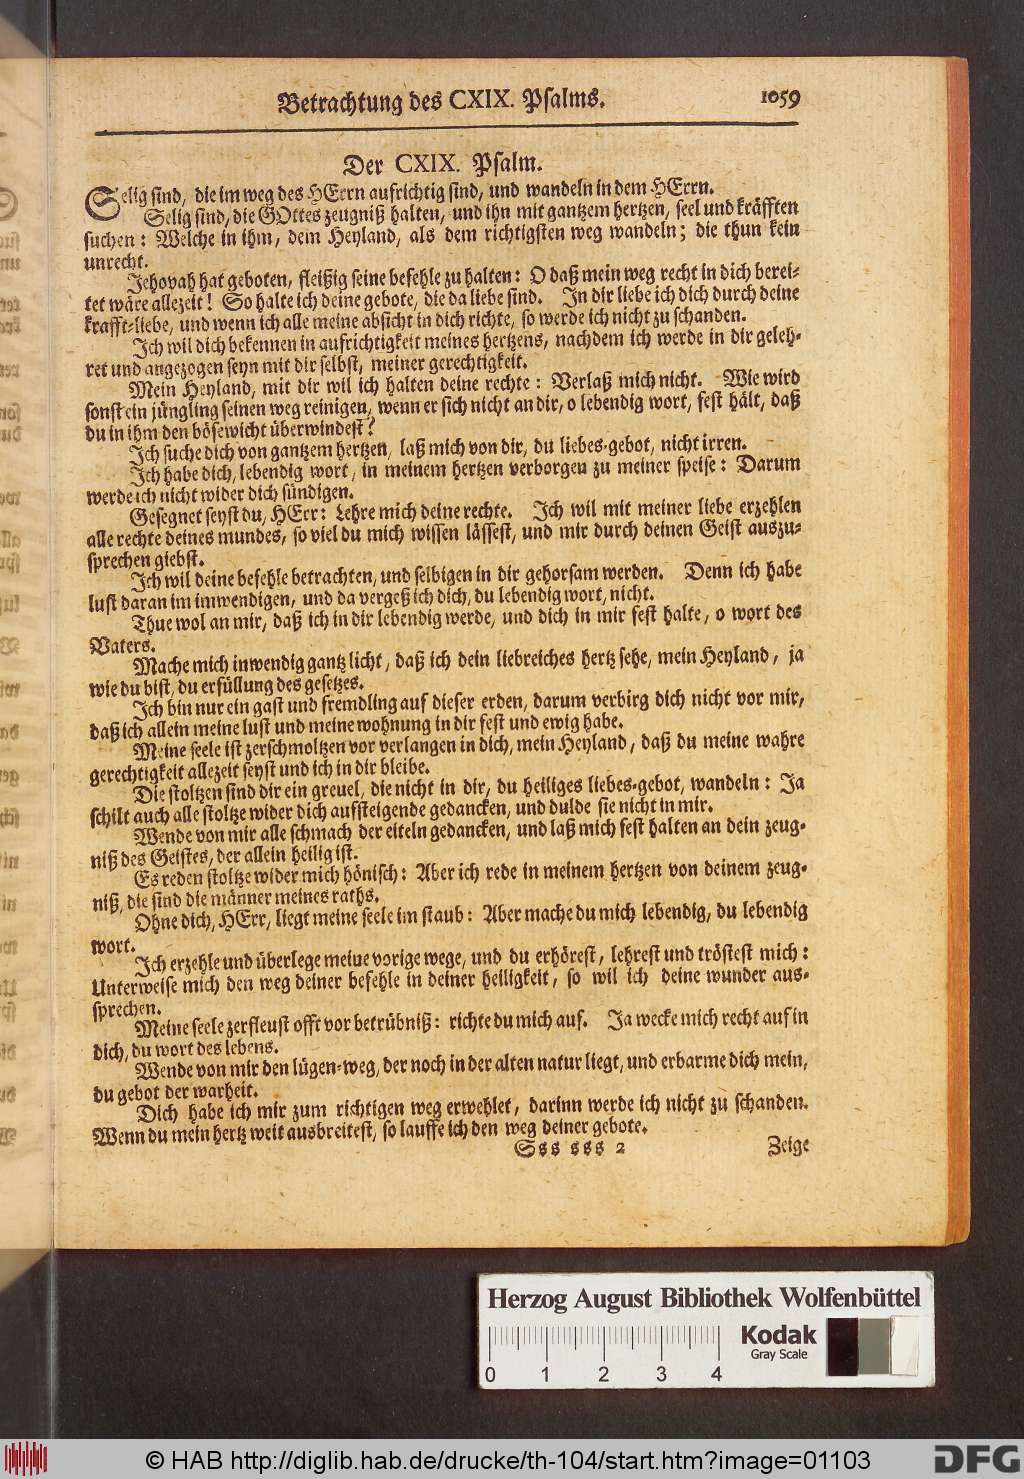 Betrachtung des CXIX. Psalms. 1059
Der CXIX. Psalm.
Selig sind, die im weg des HErrn aufrichtig sind, und wandeln in dem HErrn.
Selig sind, die GOttes zeugniß halten, und ihn mit gantzem hertzen, seel und kräfften
suchen: Welche in ihm, dem Heyland, als dem richtigsten weg wandeln; die thun kein
unrecht.
Jehovah hat geboten, fleißig seine befehle zu halten: O daß mein weg recht in dich berei-
tet wäre allezeit! So halte ich deine gebote, die da liebe sind. In dir liebe ich dich durch deine
krafft-liebe, und wenn ich alle meine absicht in dich richte, so werde ich nicht zu schanden.
Ich wil dich bekennen in aufrichtigkeit meines hertzens, nachdem ich werde in dir geleh-
ret und angezogen seyn mit dir selbst, meiner gerechtigkeit.
Mein Heyland, mit dir wil ich halten deine rechte: Verlaß mich nicht. Wie wird
sonst ein jüngling seinen weg reinigen, wenn er sich nicht an dir, o lebendig wort, fest hält, daß
du in ihm den bösewicht überwindest?
Ich suche dich von gantzem hertzen, laß mich von dir, du liebes-gebot, nicht irren.
Ich habe dich, lebendig wort, in meinem hertzen verborgen zu meiner speise: Darum
werde ich nicht wider dich sündigen.
Gesegnet seyst du, HErr: Lehre mich deine rechte. Ich wil mit meiner liebe erzehlen
alle rechte deines mundes, so viel du mich wissen lässest, und mir durch deinen Geist auszu-
sprechen giebst.
Ich wil deine befehle betrachten, und selbigen in dir gehorsam werden. Denn ich habe
lust daran im inwendigen, und da vergeß ich dich, du lebendig wort, nicht.
Thue wol an mir, daß ich in dir lebendig werde, und dich in mir fest halte, o wort des
Vaters.
Mache mich inwendig gantz licht, daß ich dein liebreiches hertz sehe, mein Heyland, ja
wie du bist, du erfüllung des gesetzes.
Ich bin nur ein gast und fremdling auf dieser erden, darum verbirg dich nicht vor mir,
daß ich allein meine lust und meine wohnung in dir fest und ewig habe.
Meine seele ist zerschmoltzen vor verlangen in dich, mein Heyland, daß du meine wahre
gerechtigkeit allezeit seyst und ich in dir bleibe.
Die stoltzen sind dir ein greuel, die nicht in dir, du heiliges liebes-gebot, wandeln: Ja
schilt auch alle stoltze wider dich aufsteigende gedancken, und dulde sie nicht in mir.
Wende von mir alle schmach der eiteln gedancken, und laß mich fest halten an dein zeug-
niß des Geistes, der allein heilig ist.
Es reden stoltze wider mich hönisch: Aber ich rede in meinem hertzen von deinem zeug-
niß, die sind die männer meines raths.
Ohne dich, HErr, liegt meine seele im staub: Aber mache du mich lebendig, du lebendig
wort.
Ich erzehle und überlege meine vorige wege, und du erhörest, lehrest und tröstest mich:
Unterweise mich den weg deiner befehle in deiner heiligkeit, so wil ich deine wunder aus-
sprechen.
Meine seele zerfleust offt vor betrübniß: richte du mich auf. Ja wecke mich recht auf in
dich, du wort des lebens.
Wende von mir den lügen-weg, der noch in der alten natur liegt, und erbarme dich mein,
du gebot der warheit.
Dich habe ich mir zum richtigen weg erwehlet, darinn werde ich nicht zu schanden.
Wenn du mein hertz weit ausbreitest, so lauffe ich den weg deiner gebote.
Sss sss 2 Zeige
Herzog August Bibliothek Wolfenbüttel
Kodak
Gray Scale
0 1 2 3 4
© HAB http://diglib.hab.de/drucke/th-104/start.htm?image=01103
DFG